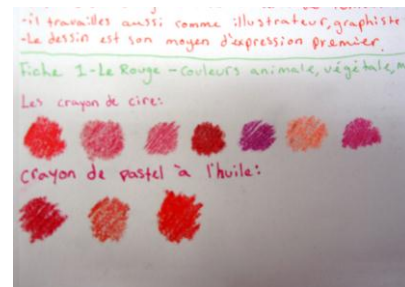 -il travailles aussi comme illustrateur, graphiste
-Le dessin est son moyen d'expression premier.
Fiche 1-Le Rouge - Couleurs animale, végétale, m
Les crayon de cire:
crayon de pastel à l'huile: